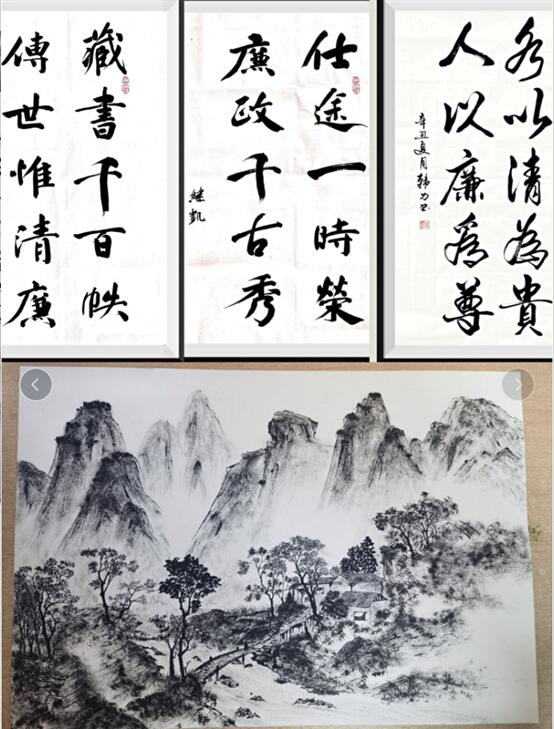 藏書千百帙
傳世惟清廉
仕途一時榮
廉政千古秀
継凱
水以清為貴
人以廉為尊
辛丑夏月韩力书